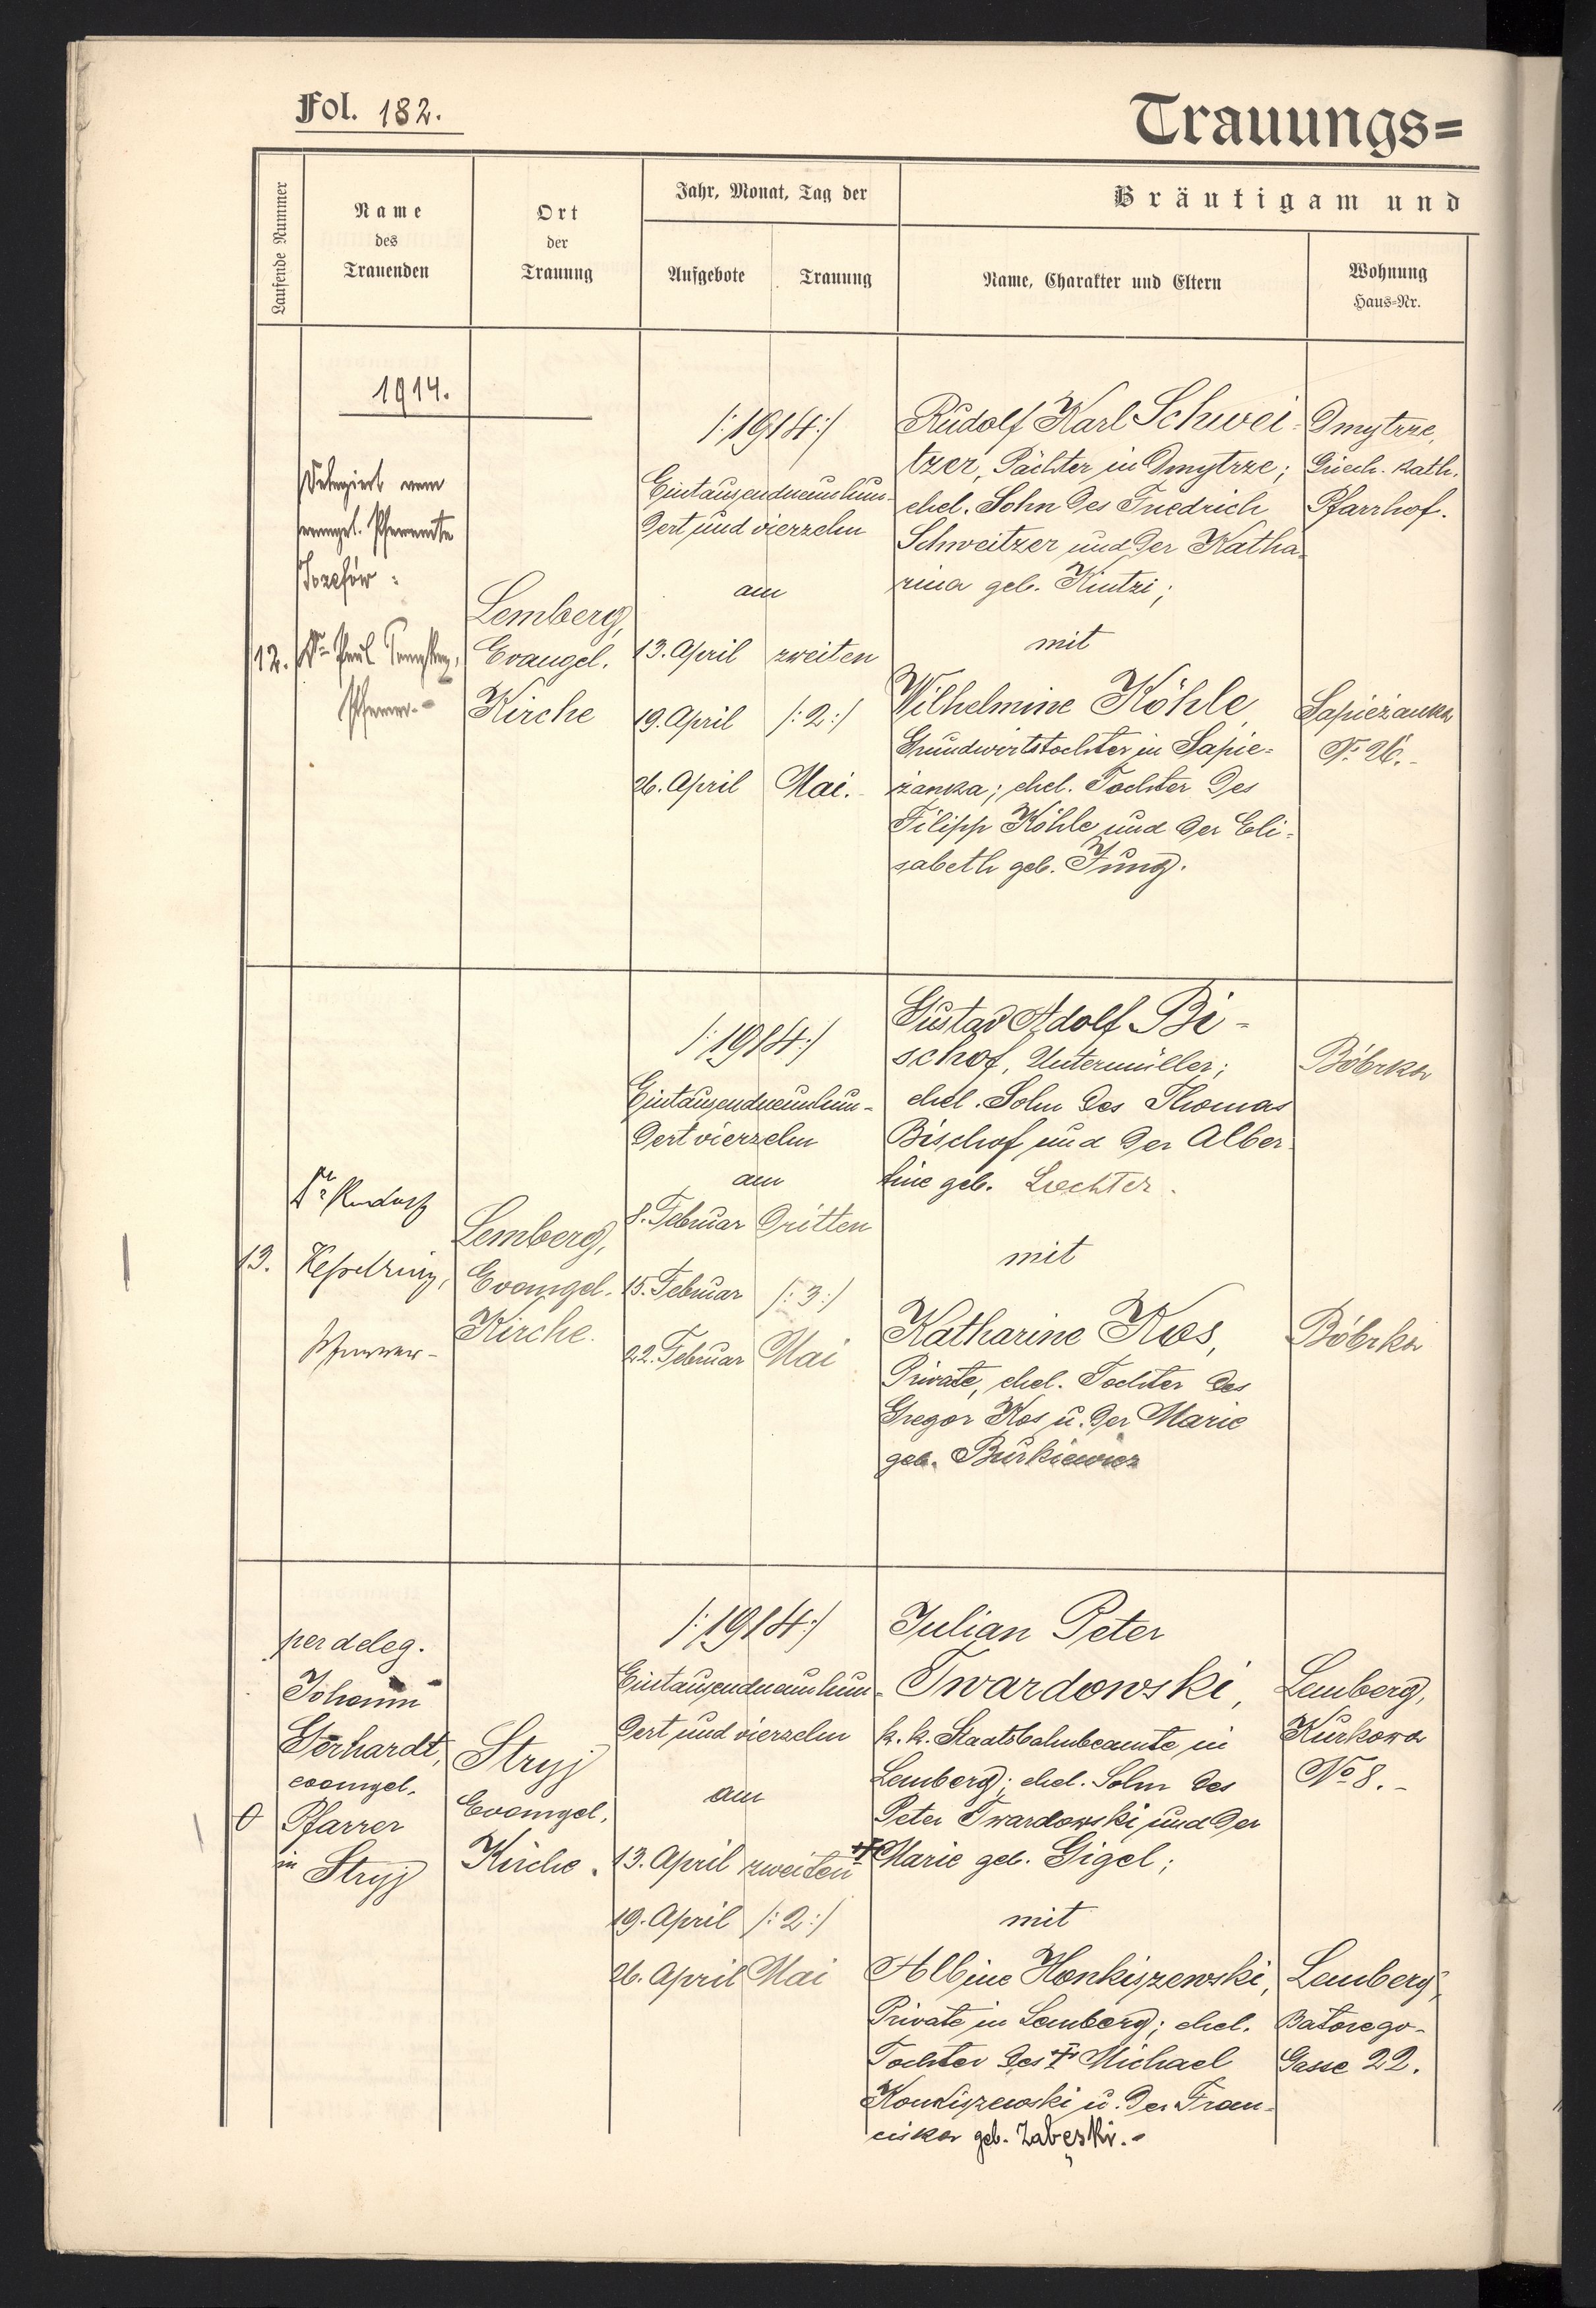 Fol. 182.
Trauungs=
Laufende Nummer
Name
des
Trauenden
Ort
der
Trauung
Jahr, Monat, Tag der
Aufgebote
Trauung
Bräutigam und
Name, Charakter und Eltern
Wohnung
Haus=Nr.
1914.
12.
Delegiert vom
evangel. Pfarramte
Józefów :
Dr. Paul
Pfarrer.-
Lemberg,
Evangel.
Kirche
/:1914:/
Eintausendneunhun-
dert und vierzehn
am
13. April zweiten
19. April /:2:/
26. April Mai.
Rudolf Karl Schwei-
tzer, Pächter in Dmytrze;
ehel. Sohn des Friedrich
Schweitzer und der Katha-
rina geb. Kintzi;
mit
Wilhelmine Köhle,
Grundwirtstochter in Sapie-
żanka; ehel. Tochter des
Filipp Köhle und der Eli-
sabeth geb. Jung.
Dmytrze,
Griech. kath.
Pfarrhof.
Sapieżanka
No. 26.-
13.
Dr Rudolf
Kesselring,
Pfarrer-
Lemberg,
Evangel.
Kirche.
/:1914:/
Eintausendneunhun-
dert vierzehn
am
8. Februar Dritten
15. Februar /:3:/
22. Februar Mai
Gustav Adolf Bi-
schof, Untermüller;
ehel. Sohn des Thomas
Bischof und der Alber-
tine geb. Lochter.
mit
Katharine Kos,
Private, ehel. Tochter des
Gregor Kos u. der Marie
geb. Burkiewicz
Bóbrka
Bóbrka
0
per deleg.
Johann
Gerhardt,
evangel.
Pfarrer
in Stryj
Stryj
Evangel.
Kirche.
/:1914:/
Eintausendneunhun-
dert und vierzehn
am
13. April zweiten
19. April /:2:/
26. April Mai
Julian Peter
Twardowski,
k. k. Staatsbahnbeamte in
Lemberg; ehel. Sohn des
Peter Twardowski und der
Marie geb. Gigel;
mit
Albine Honkiszewski,
Private in Lemberg; ehel.
Tochter des † Michael
Konkiszewski u. der Fran-
ciska geb. Zabęski.-
Lemberg,
Kurkowa
No 8.-
Lemberg,
Batorego-
Gasse 22.